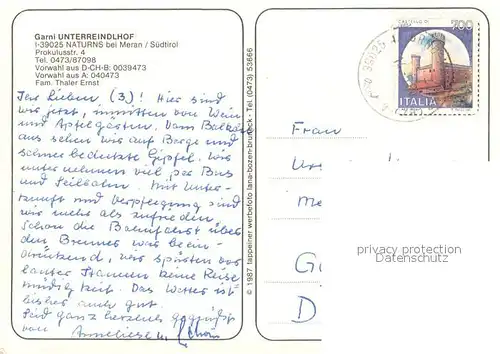 Garni UNTERREINDLHOF
I-39025 NATURNS bei Meran / Südtirol
Prokulusstr. 4
Tel. 0473/87098
Vorwahl aus D-CH-B: 0039473
Vorwahl aus A: 040473
Fam. Thaler Ernst
Ihr Lieben (3)! Hier sind
wir jetzt, inmitten von Wein
und Apfelgärten. Vom Balkon
aus sehen wir auf Berge und
schneebedeckte Gipfel. Wir
unternehmen viel per Bus
und Seilbahn. Mit Unter-
kunft und Verpflegung sind
wir mehr als zufrieden.
Schon die Bahnfahrt über
den Brenner war beein-
druckend, wir spürten vor
lauter Staunen keine Reise
müdigkeit. Das Wetter ist
bisher auch gut.
Seid ganz herzlich gegrüßt
von Anneliese
© 1987 tappeiner werbefoto lana-bozen-bruneck - Tel. (0473) 53666
700
ITALIA
39025
Frau
privacy protection
Datenschutz
D